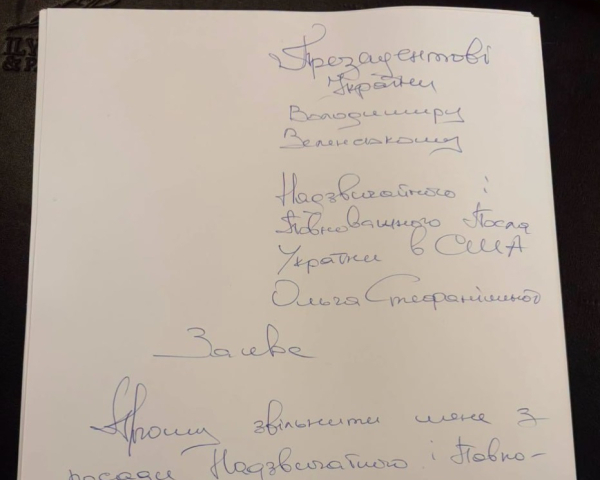 Президентові
України
Володимиру
Зеленському
Надзвичайного і
Повноважного Посла
України в США
Ольга Стефанішиної
Заява
Прошу звільнити мене з
посади Надзвичайного і Повно-